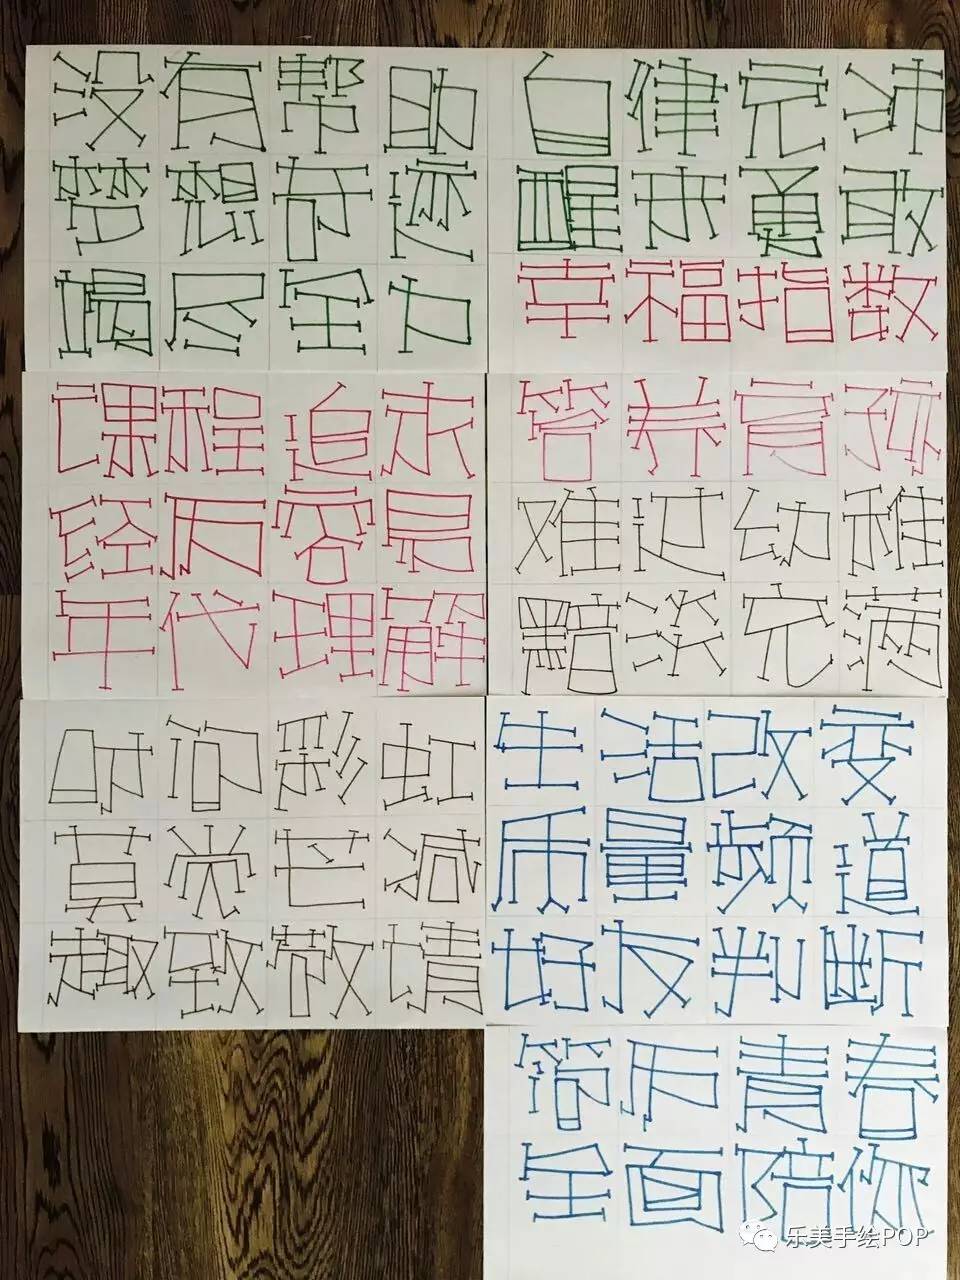 没有帮助
梦想奇迹
竭尽全力
自律充沛
醒来勇敢
幸福指数
课程追求
经历容易
年代理解
答养育
难过幼稚
黯淡充满
时间彩虹
莫觉芒减
趣致散情
生活改变
质量频道
好友判断
简历青春
全面陪你
乐美手绘POP